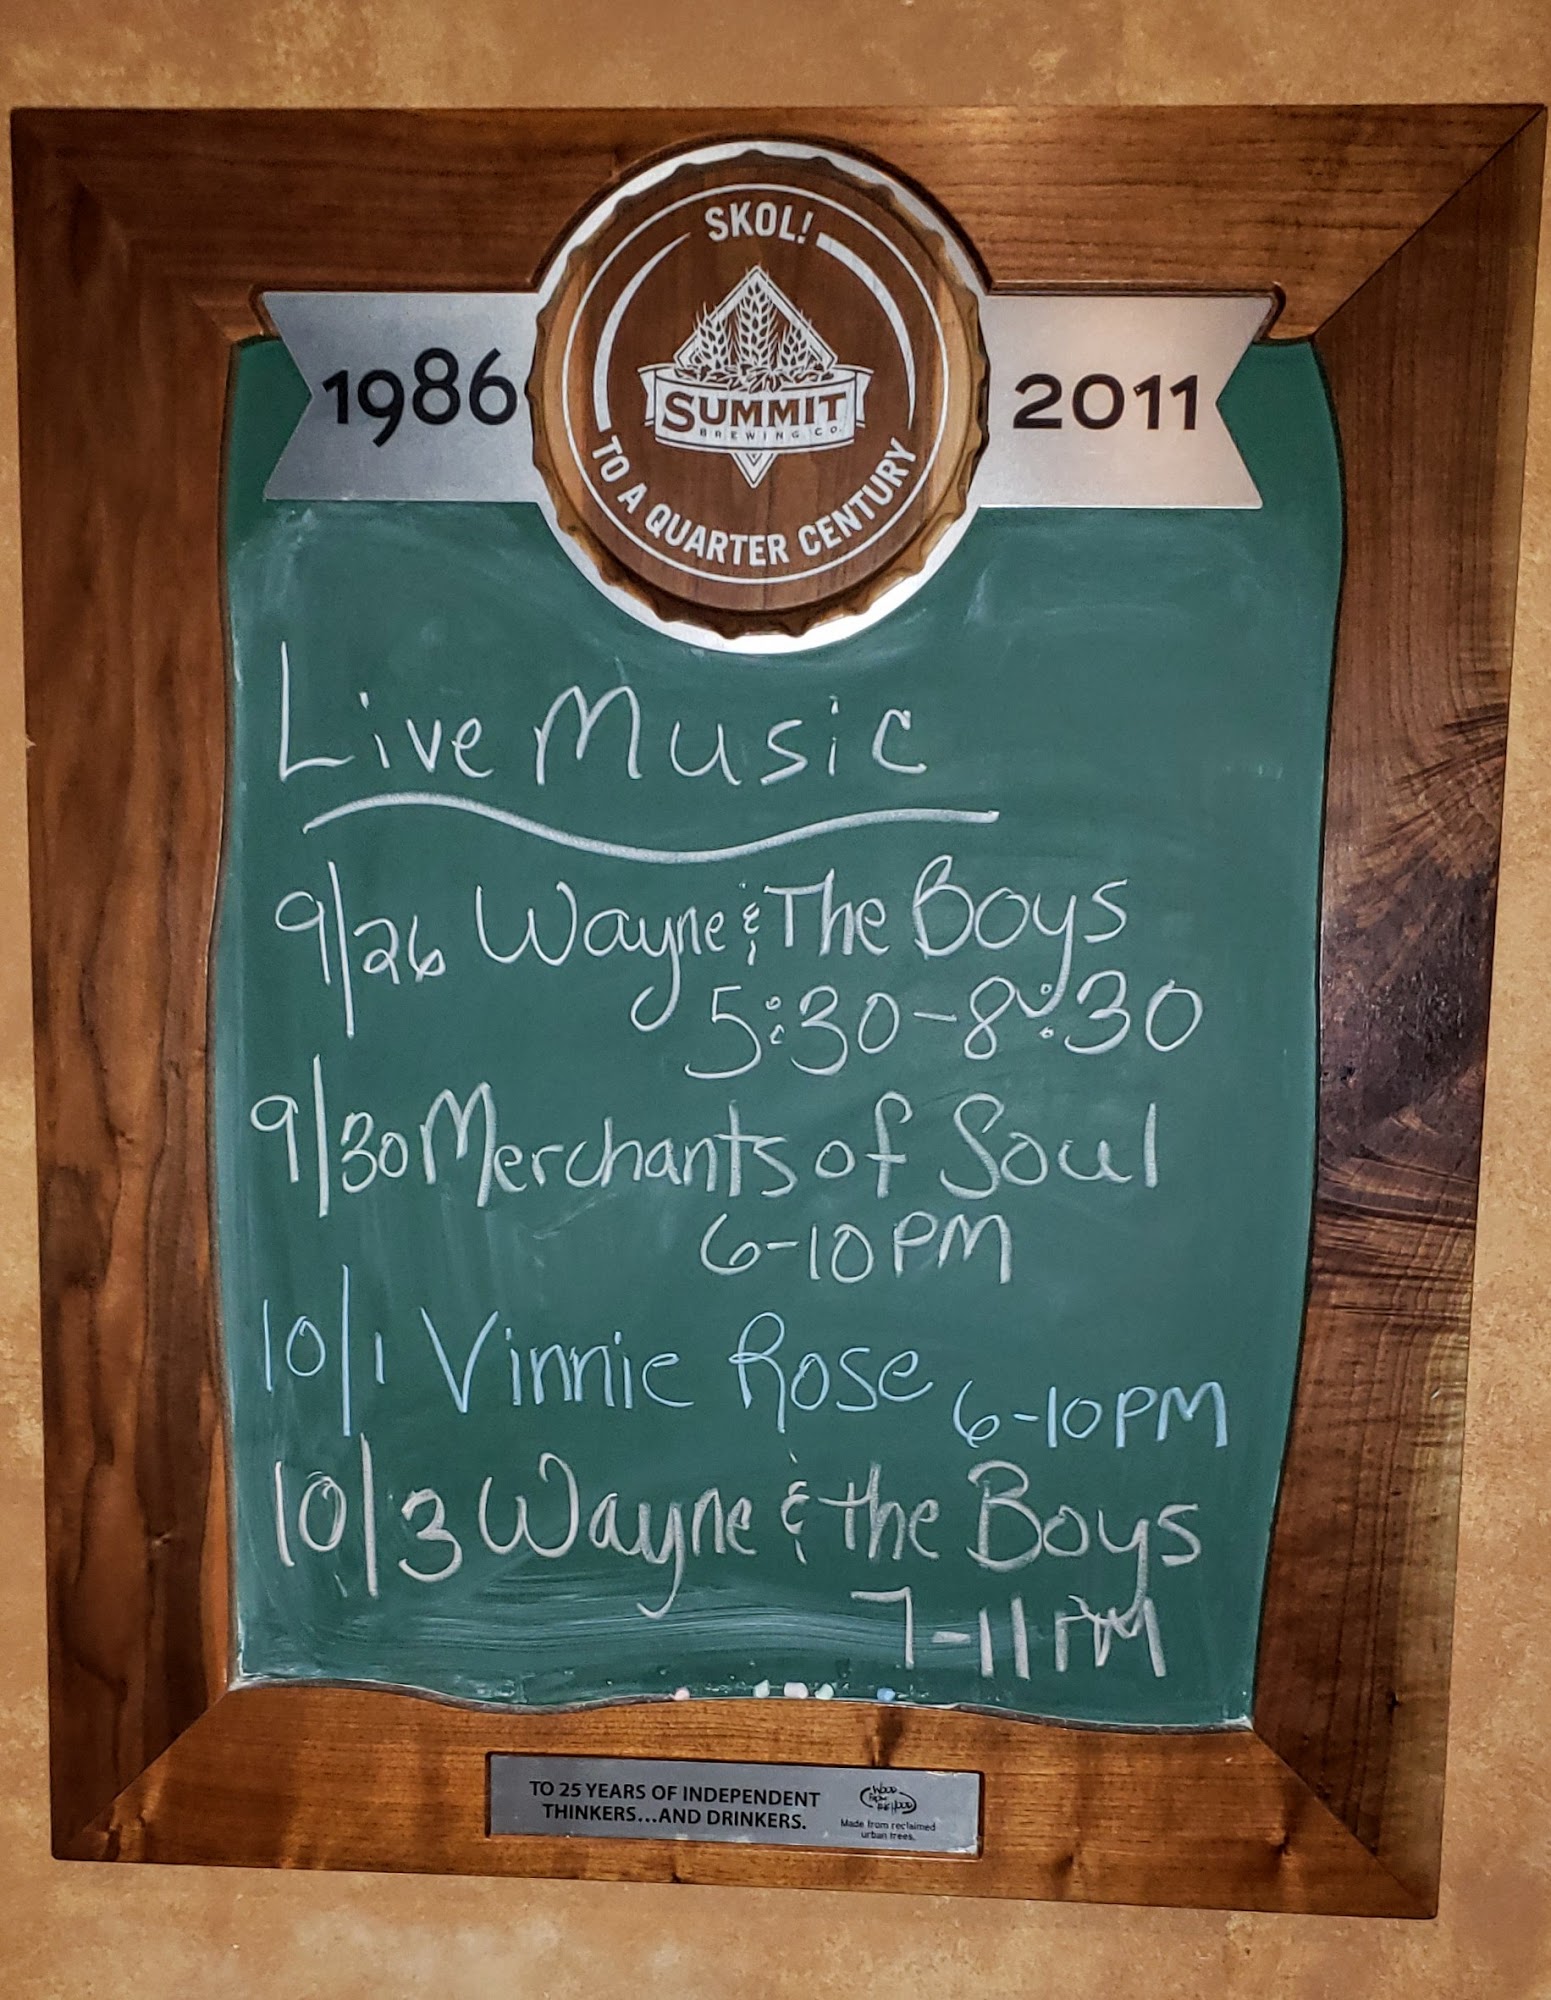 SKOL!
1986
SUMMIT
BREWING CO.
2011
TO A QUARTER CENTURY
Live Music
9/26 Wayne & The Boys
5:30-8:30
9/30 Merchants of Soul
6-10PM
10/1 Vinnie Rose 6-10PM
10/3 Wayne & the Boys
7-11PM
TO 25 YEARS OF INDEPENDENT
THINKERS...AND DRINKERS.
WOOD
FROM
THE HOOD
Made from reclaimed
urban trees.